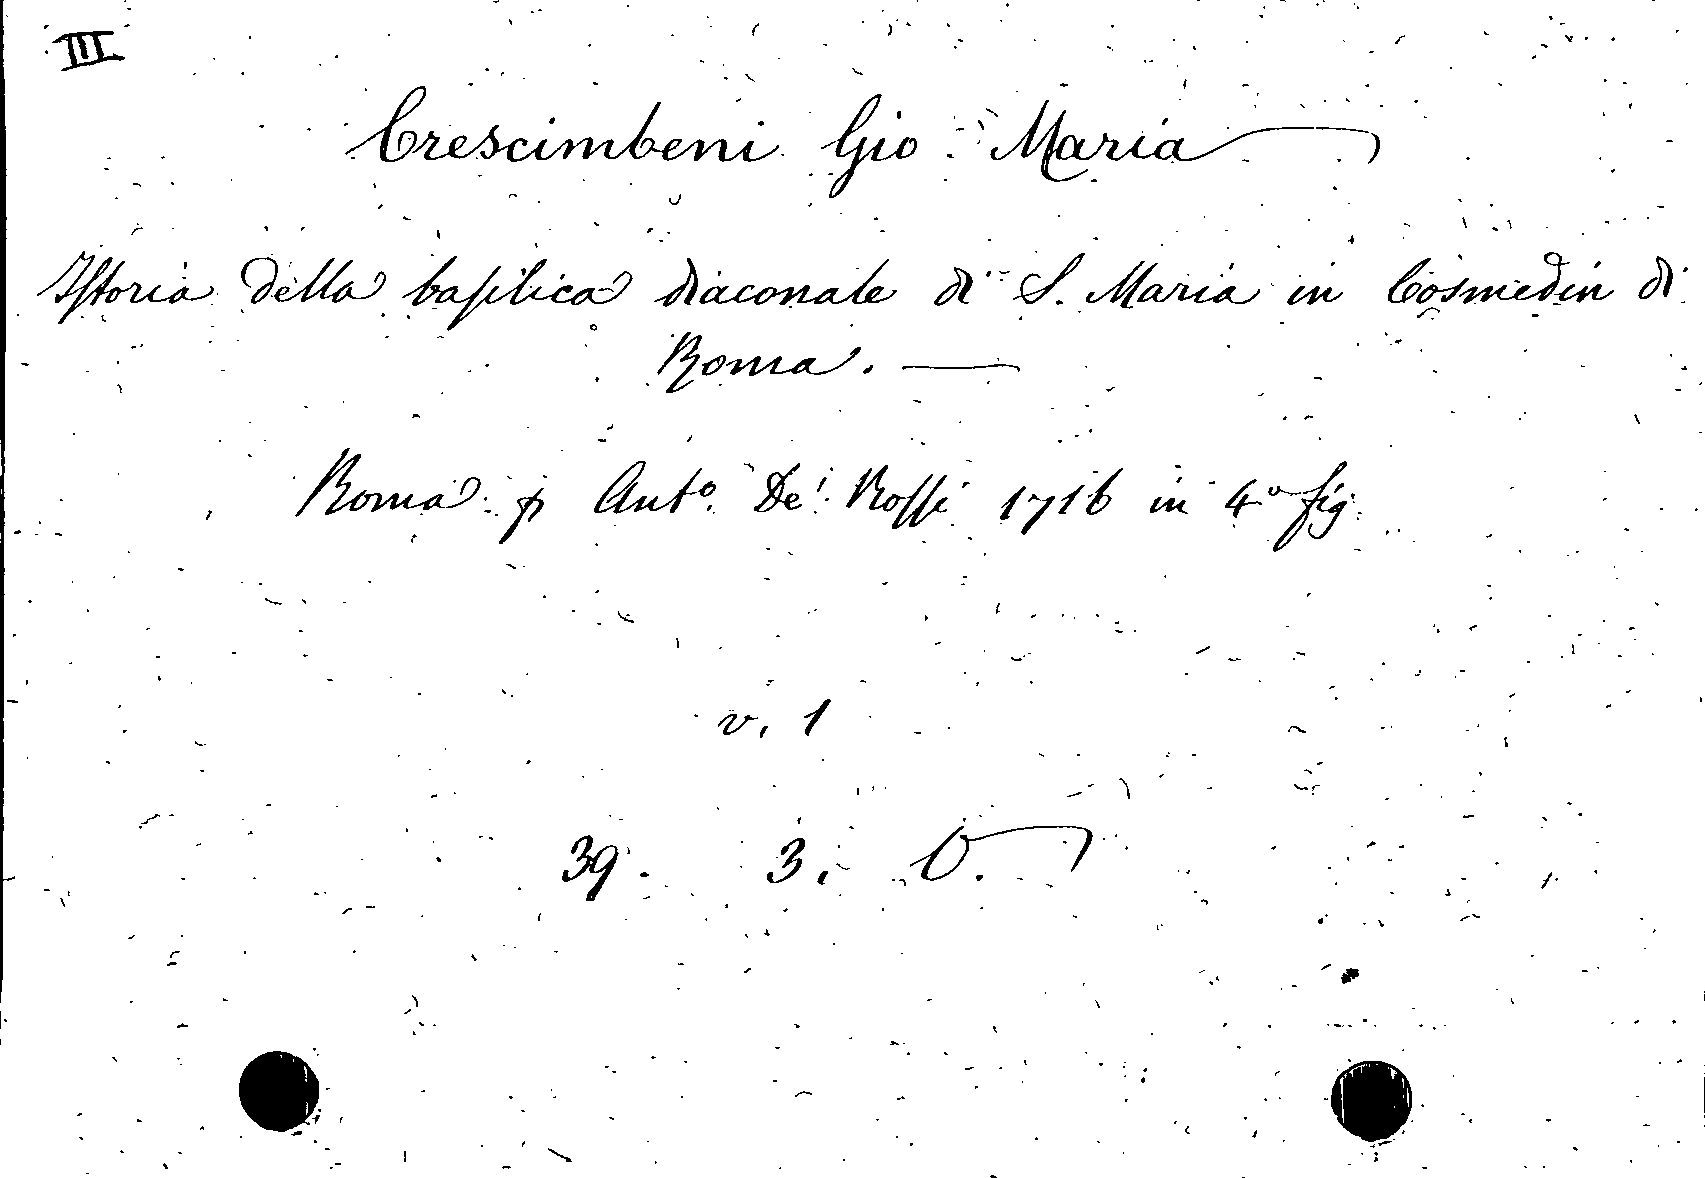 III
Crescimbeni Gio Maria
Istoria della basilica diaconale di S. Maria in Cosmedin di
Roma. —
Roma p Ant.º De' Rossi 1716 in 4º fig.
v. 1
39. 3. O.